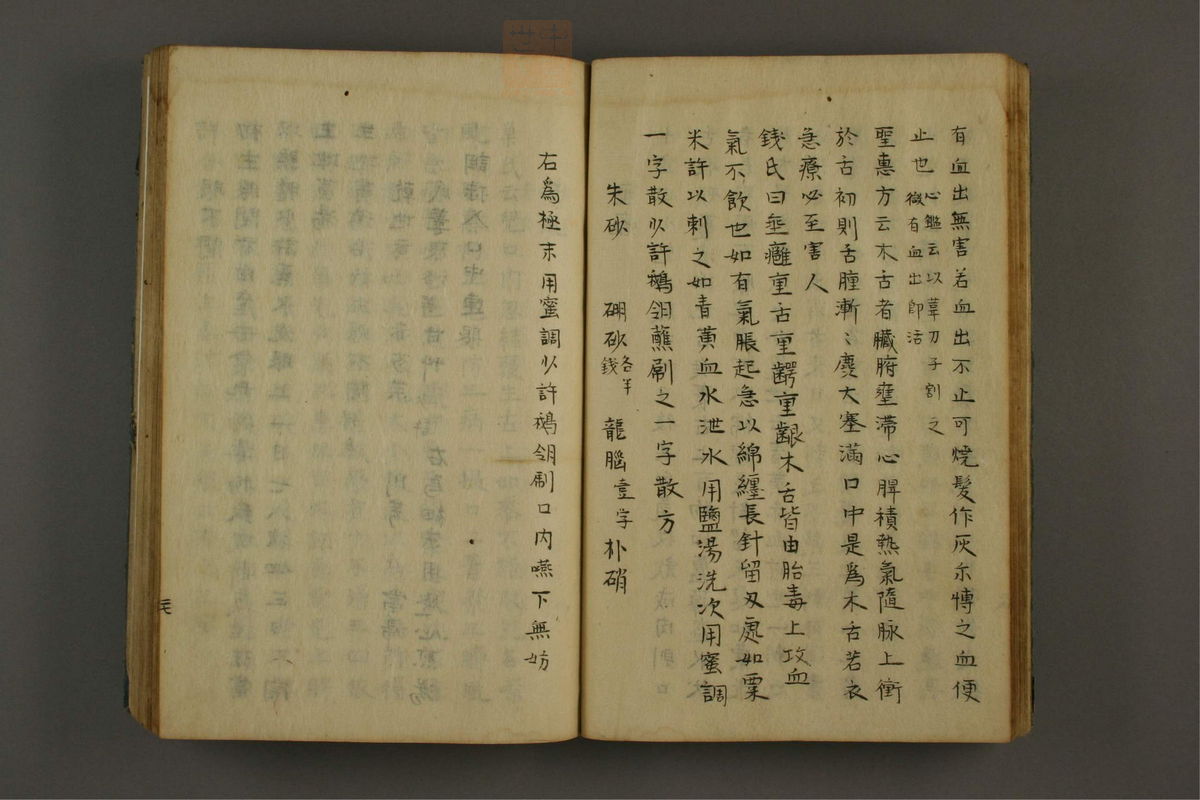 有血出無害若血出不止可燒髮作灰尓慱之血便
止也
心鑑云以葦刀子割之
微有血出即活
聖惠方云木舌者臟腑壅滯心脾積熱氣隨脉上衝
於舌初則舌腫漸〻麼大塞滿口中是爲木舌若衣
急療必至害人
錢氏曰垂癰重舌重齶重齦木舌皆由胎毒上攻血
氣不飲也如有氣脹起急以綿纏長針留刄處如粟
米許以刺之如青黃血水泄水用鹽湯洗次用蜜調
一字散少許鵝翎蘸刷之一字散方
朱砂 硼砂各半錢 龍腦壹字 朴硝
右爲極末用蜜調少許鵝翎刷口內嚥下無妨